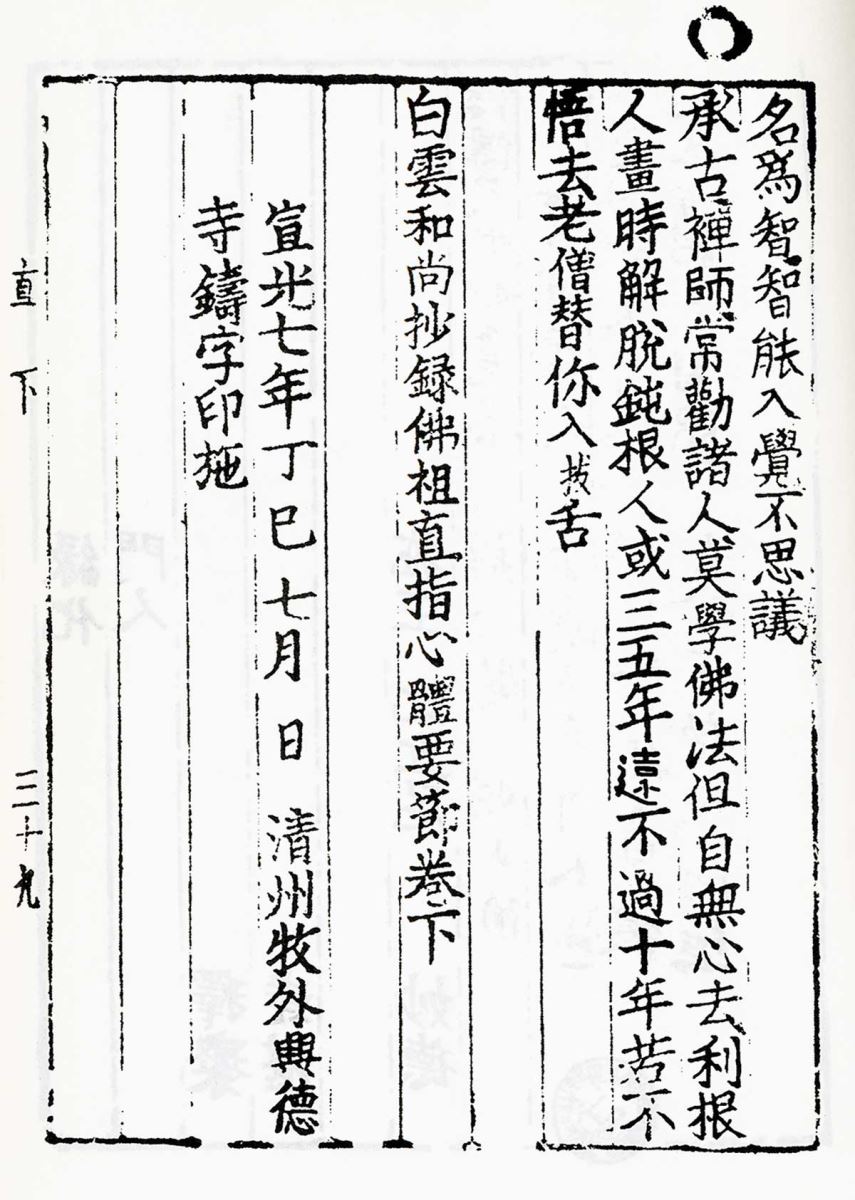 名爲智智能入覺不思議
承古禪師常勸諸人莫學佛法但自無心去利根
人畫時解脫鈍根人或三五年遠不過十年若不
悟去老僧替你入拔舌
白雲和尚抄錄佛祖直指心體要節卷下
宣光七年丁巳七月 日 清州牧外興德
寺鑄字印施
直 下 三十九